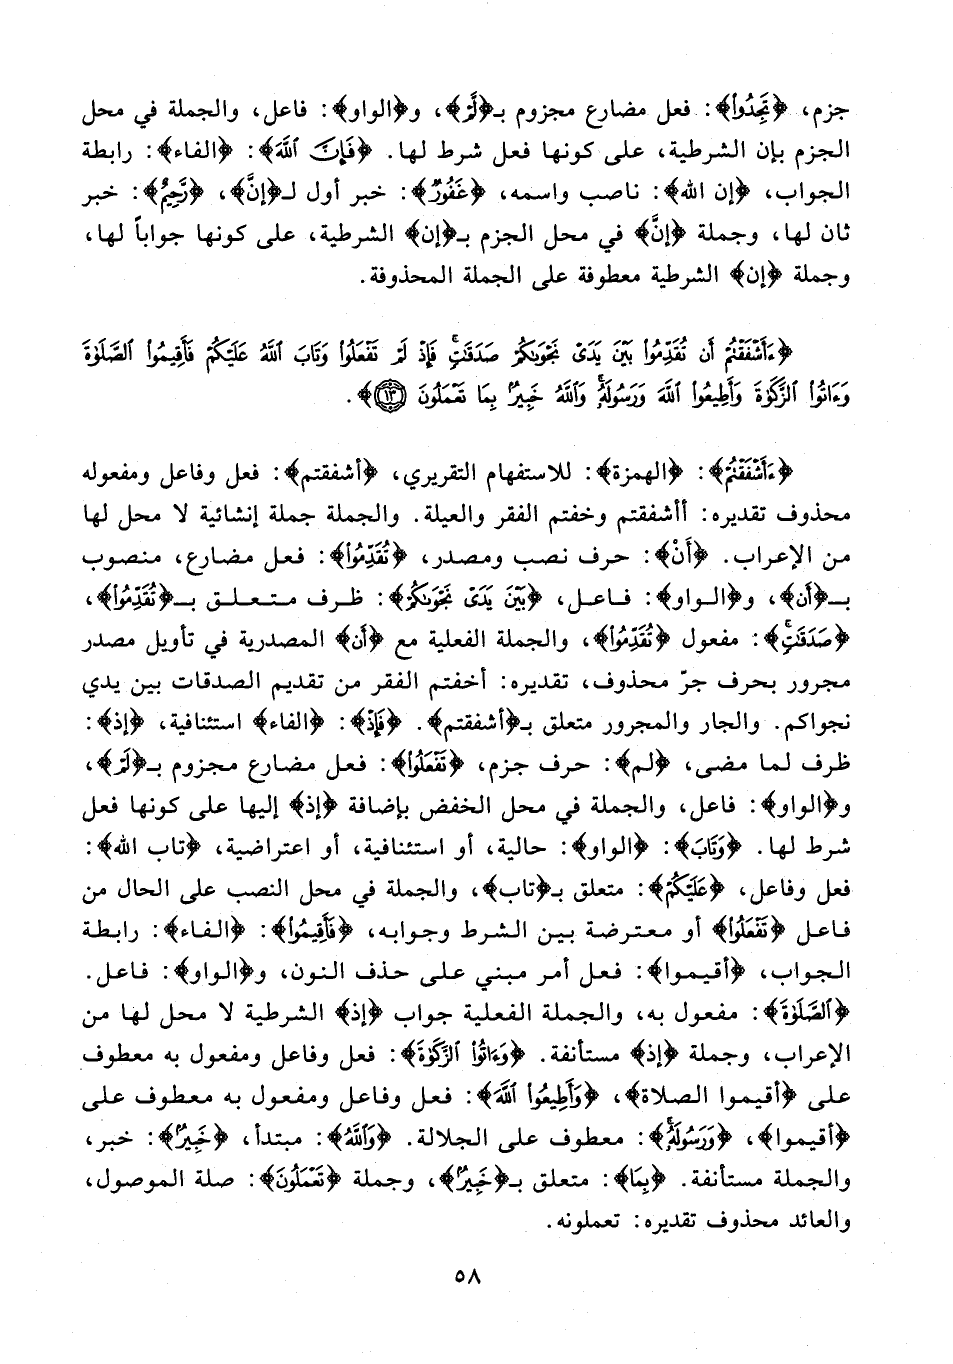 جزم، ﴿تَجِدُوا۟﴾: فعل مضارع مجزوم بـ﴿لَّمْ﴾، و﴿الواو﴾: فاعل، والجملة في محل
الجزم بإن الشرطية، على كونها فعل شرط لها. ﴿فَإِنَّ ٱللَّهَ﴾: ﴿الفاء﴾: رابطة
الجواب، ﴿إن الله﴾: ناصب واسمه، ﴿غَفُورٌ﴾: خبر أول لـ﴿إنَّ﴾، ﴿رَّحِيمٌ﴾: خبر
ثان لها، وجملة ﴿إنَّ﴾ في محل الجزم بـ﴿إن﴾ الشرطية، على كونها جواباً لها،
وجملة ﴿إن﴾ الشرطية معطوفة على الجملة المحذوفة.
﴿ءَأَشْفَقْتُمْ أَن تُقَدِّمُوا۟ بَيْنَ يَدَىْ نَجْوَىٰكُمْ صَدَقَٰتٍ ۚ فَإِذْ لَمْ تَفْعَلُوا۟ وَتَابَ ٱللَّهُ عَلَيْكُمْ فَأَقِيمُوا۟ ٱلصَّلَوٰةَ
وَءَاتُوا۟ ٱلزَّكَوٰةَ وَأَطِيعُوا۟ ٱللَّهَ وَرَسُولَهُۥ ۚ وَٱللَّهُ خَبِيرٌۢ بِمَا تَعْمَلُونَ ١٣﴾.
﴿ءَأَشْفَقْتُمْ﴾: ﴿الهمزة﴾: للاستفهام التقريري، ﴿أشفقتم﴾: فعل وفاعل ومفعوله
محذوف تقديره: أأشفقتم وخفتم الفقر والعيلة. والجملة جملة إنشائية لا محل لها
من الإعراب. ﴿أَنْ﴾: حرف نصب ومصدر، ﴿تُقَدِّمُوا۟﴾: فعل مضارع، منصوب
بـ﴿أن﴾، و﴿الواو﴾: فاعل، ﴿بَيْنَ يَدَىْ نَجْوَىٰكُمْ﴾: ظرف متعلق بـ﴿تُقَدِّمُوا۟﴾،
﴿صَدَقَٰتٍ ۚ﴾: مفعول ﴿تُقَدِّمُوا۟﴾، والجملة الفعلية مع ﴿أن﴾ المصدرية في تأويل مصدر
مجرور بحرف جرّ محذوف، تقديره: أخفتم الفقر من تقديم الصدقات بين يدي
نجواكم. والجار والمجرور متعلق بـ﴿أشفقتم﴾. ﴿فَإِذْ﴾: ﴿الفاء﴾ استئنافية، ﴿إذ﴾:
ظرف لما مضى، ﴿لم﴾: حرف جزم، ﴿تَفْعَلُوا۟﴾: فعل مضارع مجزوم بـ﴿لَمْ﴾،
و﴿الواو﴾: فاعل، والجملة في محل الخفض بإضافة ﴿إذ﴾ إليها على كونها فعل
شرط لها. ﴿وَتَابَ﴾: ﴿الواو﴾: حالية، أو استئنافية، أو اعتراضية، ﴿تاب الله﴾:
فعل وفاعل، ﴿عَلَيْكُمْ﴾: متعلق بـ﴿تاب﴾، والجملة في محل النصب على الحال من
فاعل ﴿تَفْعَلُوا۟﴾ أو معترضة بين الشرط وجوابه، ﴿فَأَقِيمُوا۟﴾: ﴿الفاء﴾: رابطة
الجواب، ﴿أقيموا﴾: فعل أمر مبني على حذف النون، و﴿الواو﴾: فاعل.
﴿ٱلصَّلَوٰةَ﴾: مفعول به، والجملة الفعلية جواب ﴿إذ﴾ الشرطية لا محل لها من
الإعراب، وجملة ﴿إذ﴾ مستأنفة. ﴿وَءَاتُوا۟ ٱلزَّكَوٰةَ﴾: فعل وفاعل ومفعول به معطوف
على ﴿أقيموا الصلاة﴾، ﴿وَأَطِيعُوا۟ ٱللَّهَ﴾: فعل وفاعل ومفعول به معطوف على
﴿أقيموا﴾، ﴿وَرَسُولَهُۥ ۚ﴾: معطوف على الجلالة. ﴿وَٱللَّهُ﴾: مبتدأ، ﴿خَبِيرٌۢ﴾: خبر،
والجملة مستأنفة. ﴿بِمَا﴾: متعلق بـ﴿خَبِيرٌۢ﴾، وجملة ﴿تَعْمَلُونَ﴾: صلة الموصول،
والعائد محذوف تقديره: تعملونه.
٥٨